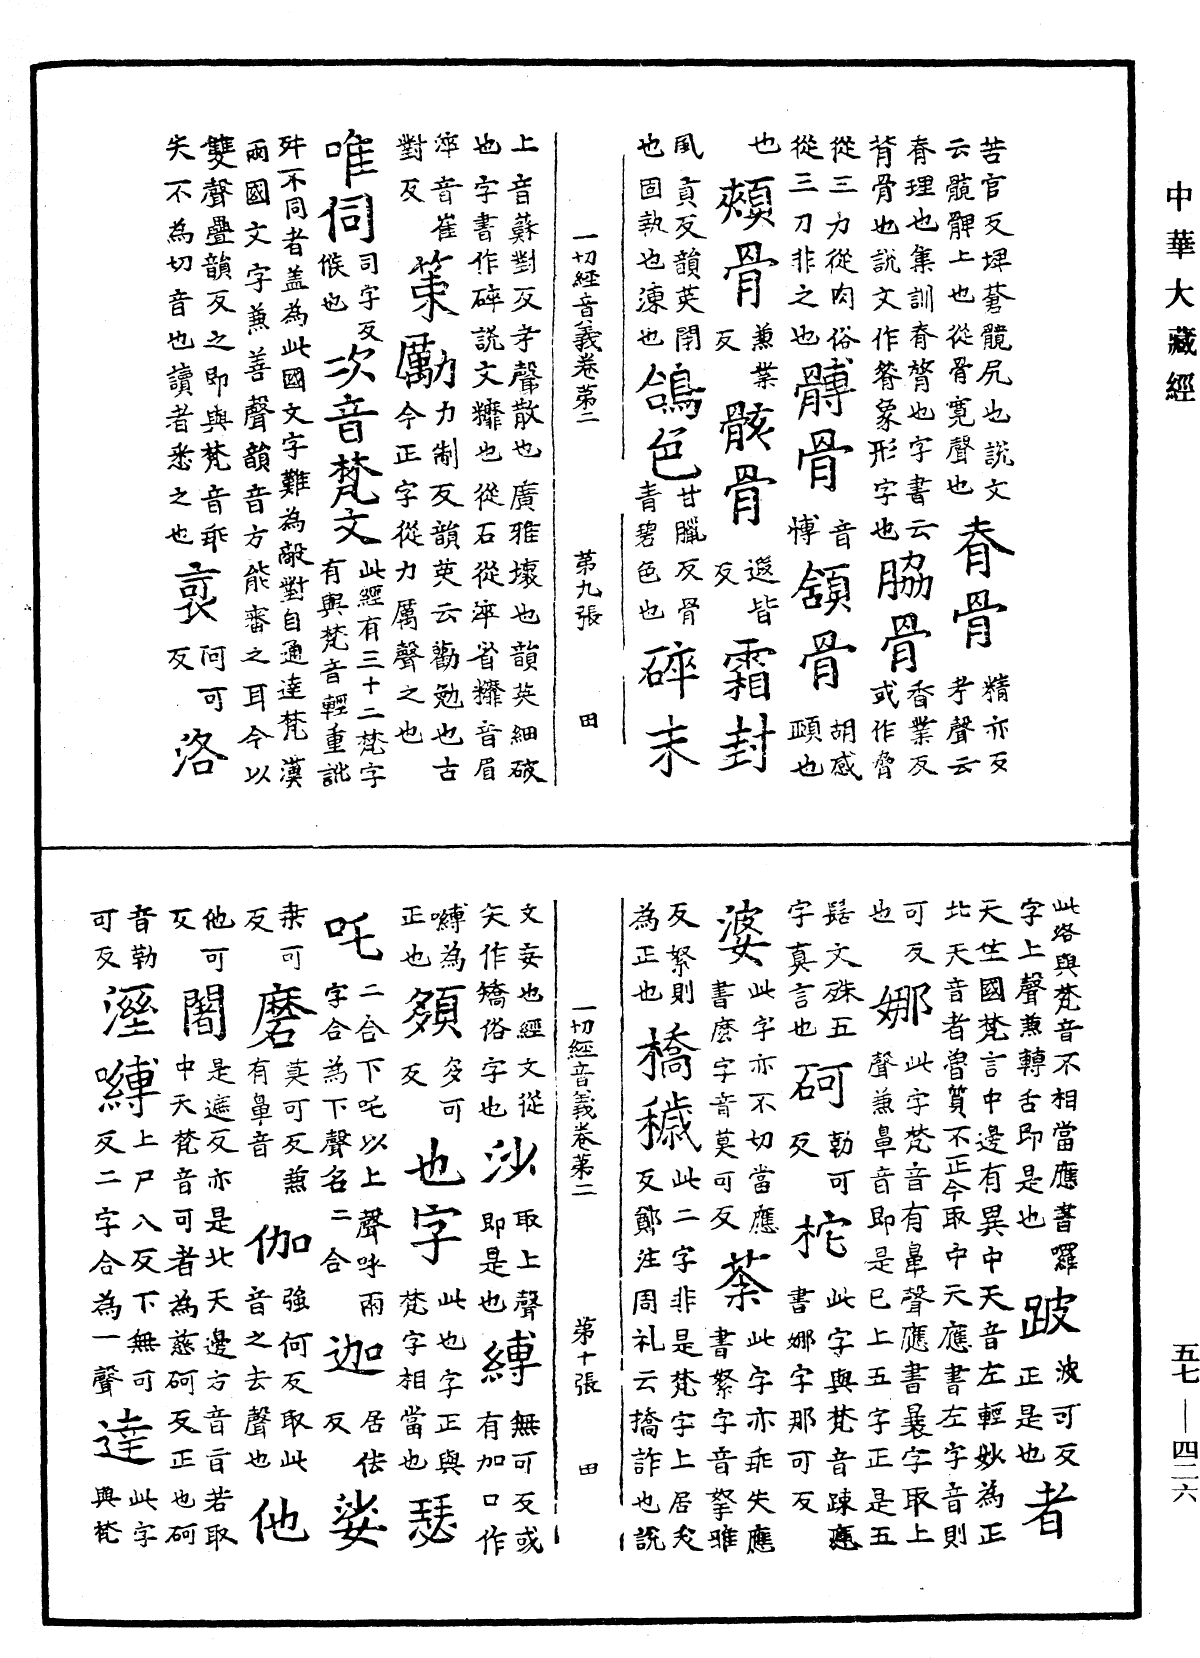 中華大藏經
五七—四二六
苦官反埤蒼髖尻也説文
云髖髀上也從骨寛聲也
脊骨
精亦反
孝聲云
脊理也集訓脊膂也字書云
背骨也説文作𦟝象形字也
脇骨
香業反
或作脅
從三力從肉俗
從三刀非之也
髆骨
音
博
頷骨
胡感
頤也
也
頰骨
兼業
反
骸骨
遐皆
反
霜封
風貢反韻英閇
也固執也凍也
鴿色
甘臘反骨
青碧色也
碎末
一切經音義卷第二 第九張 田
上音蘇對反孝聲散也廣雅壞也韻英細破
也字書作碎説文䊳也從石從卒省䊳音眉
卒音崔
對反
策勵
力制反韻英云勸勉也古
今正字從力厲聲之也
唯伺
司字反
候也
次音梵文
此經有三十二梵字
有與梵音輕重訛
舛不同者盖為此國文字難為敵對自通達梵漢
兩國文字兼善聲韻音方能審之耳今以
雙聲疊韻反之即與梵音乖
失不為切音也讀者悉之也
裒
阿可
反
洛
此洛與梵音不相當應書囉
字上聲兼轉舌即是也
跛
波可反
正是也
者
天竺國梵言中邊有異中天音左輕妙為正
北天音者曽質不正今取中天應書左字音則
可反
也
娜
此字梵音有鼻聲應書曩字取上
聲兼鼻音即是已上五字正是五
髻文殊五
字真言也
砢
勒可
反
柁
此字與梵音踈應
書娜字那可反
婆
此字亦不切當應
書麽字音莫可反
荼
此字亦乖失應
書拏字音拏雅
反拏則
為正也
撟穢
此二字非是梵字上居夭
反鄭注周礼云撟詐也説
一切經音義卷第二 第十張 田
文妄也經文從
矢作矯俗字也
沙
取上聲
即是也
縛
無可反或
有加口作
嚩為
正也
䫂
多可
反
也字
此也字正與
梵字相當也
瑟
吒
二合下吒以上聲呼兩
字合為下聲名二合
迦
居佉
反
娑
桒可
反
磨
莫可反兼
有鼻音
伽
強何反取此
音之去聲也
他
他可
反
闍
是遮反亦是北天邊方音言若取
中天梵音可者為慈砢反正也砢
音勒
可反
濕嚩
上尸八反下無可
反二字合為一聲
達
此字
與梵